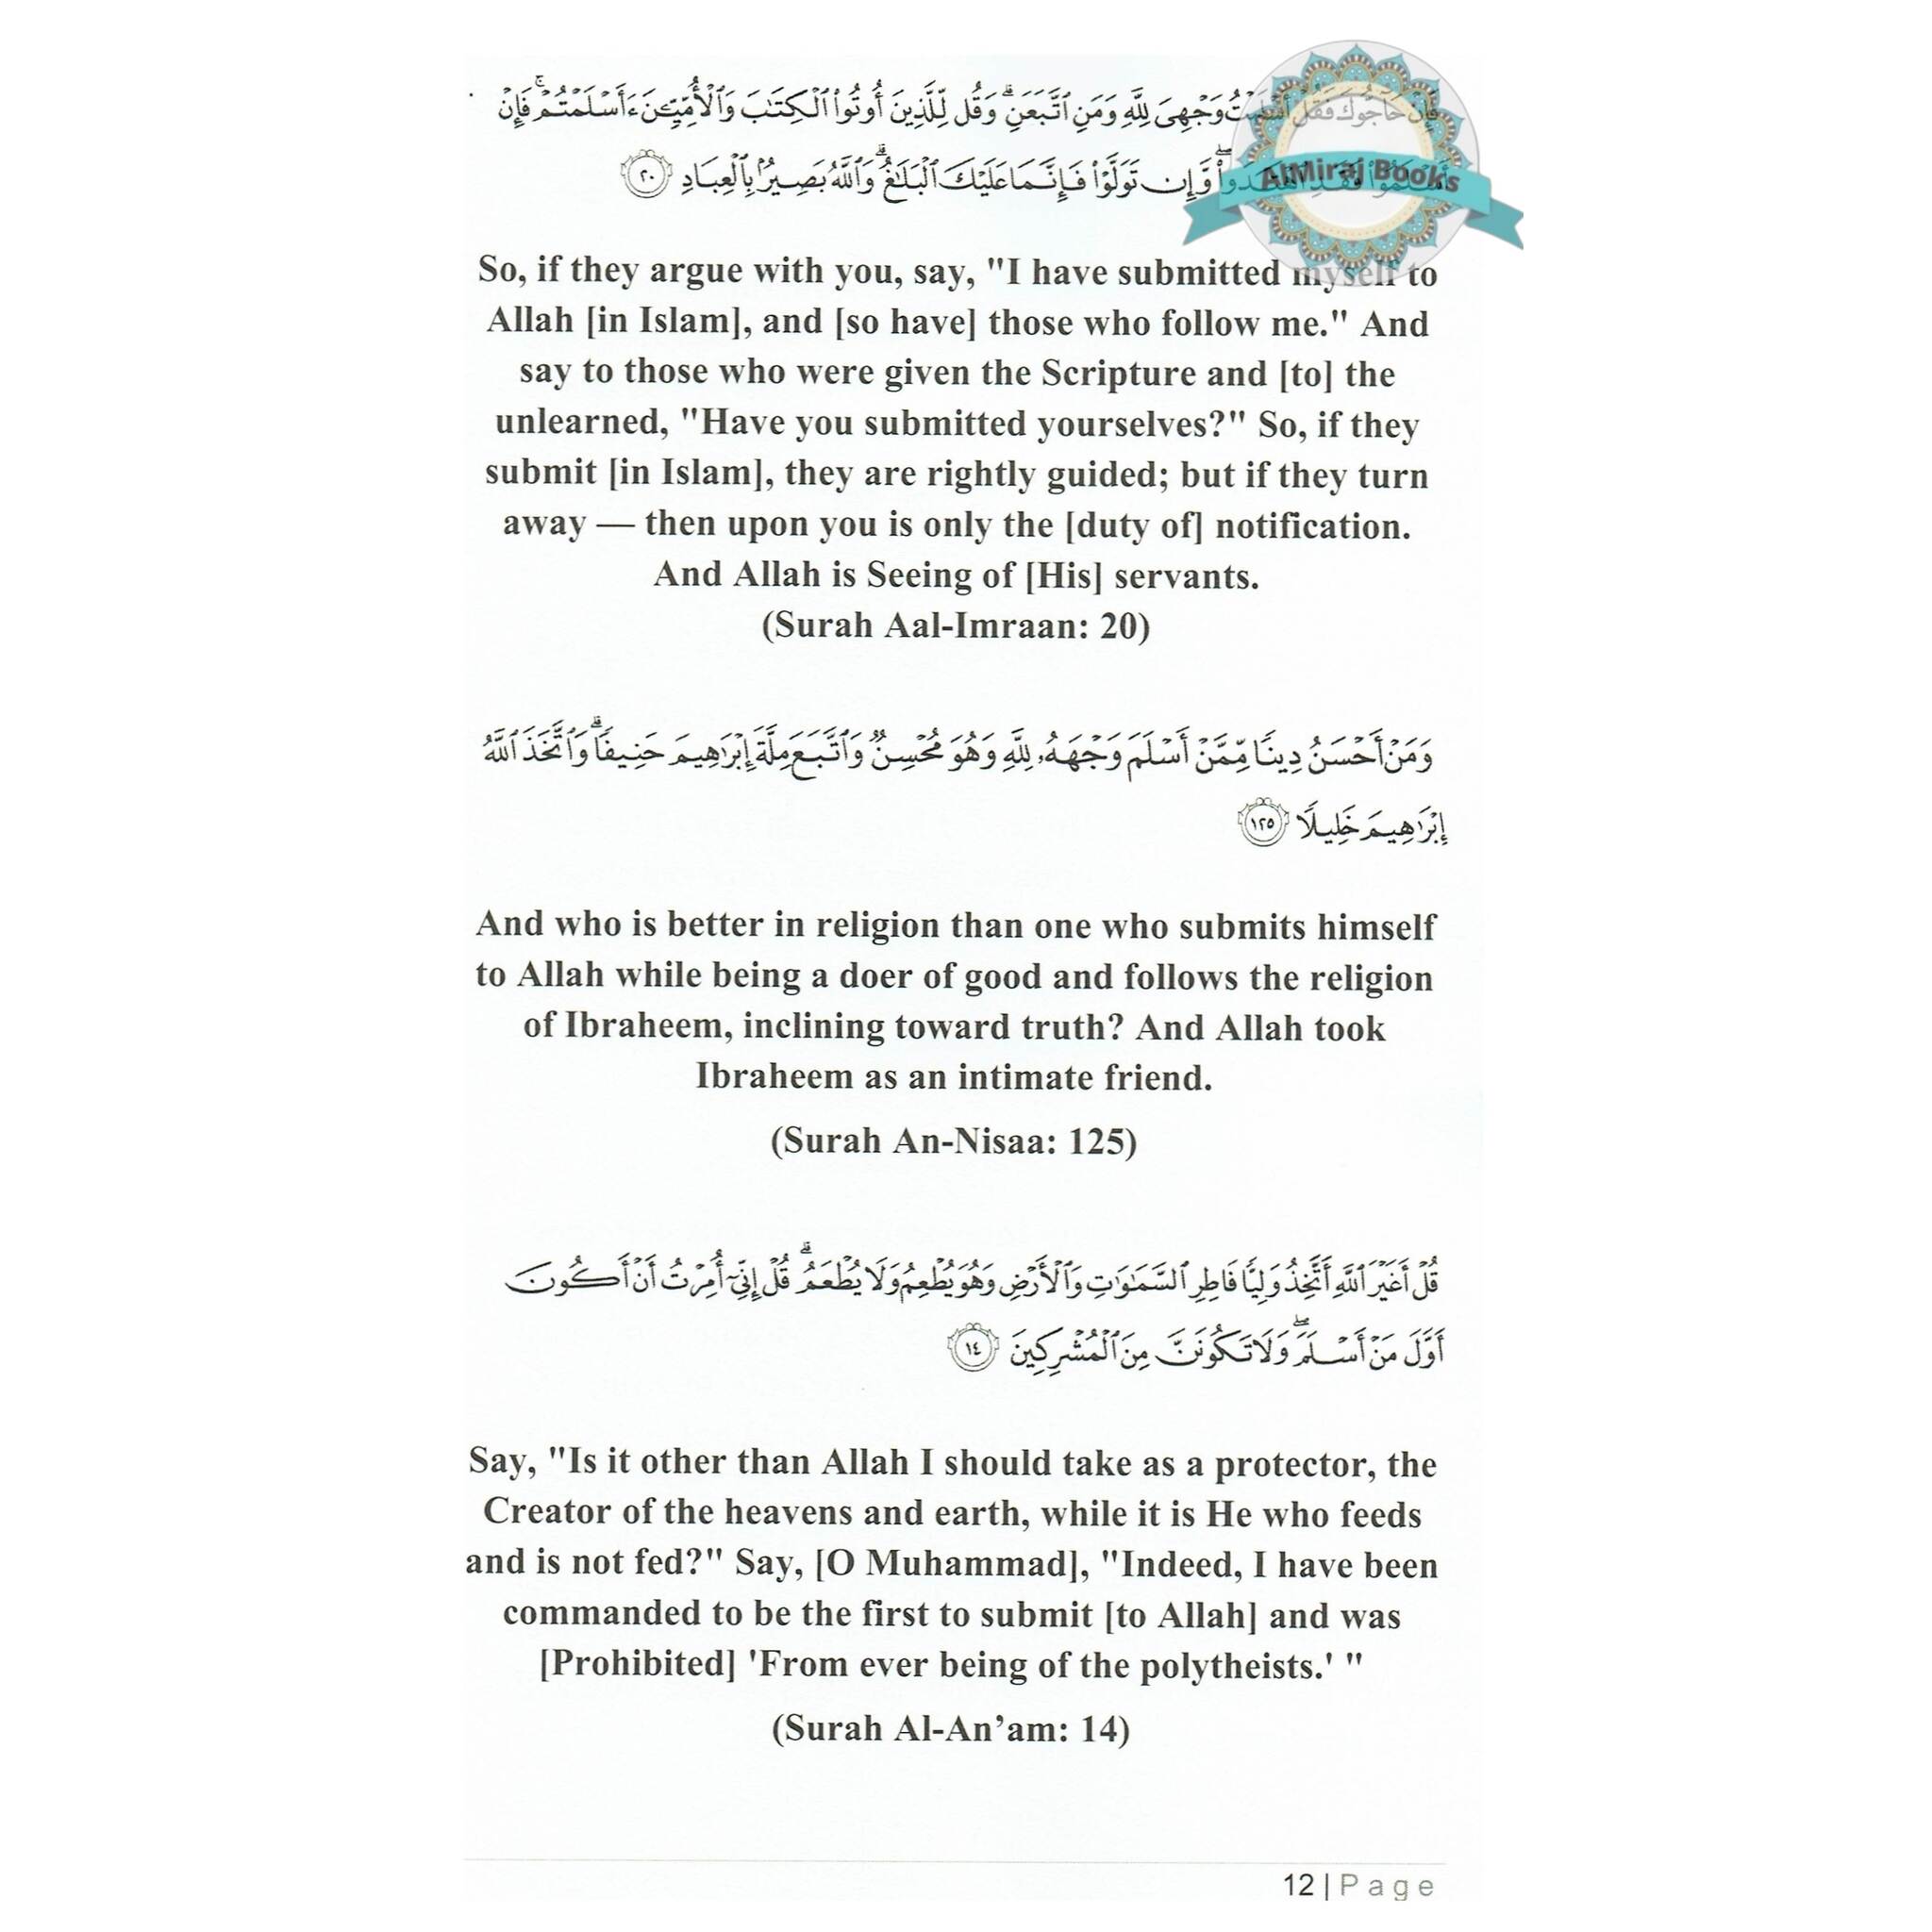 فَإِنْ حَآجُّوكَ فَقُلْ أَسْلَمْتُ وَجْهِىَ لِلَّهِ وَمَنِ ٱتَّبَعَنِ ۗ وَقُل لِّلَّذِينَ أُوتُوا۟ ٱلْكِتَـٰبَ وَٱلْأُمِّيِّـۧنَ ءَأَسْلَمْتُمْ ۚ فَإِنْ
AlMiraj Books
أَسْلَمُوا۟ فَقَدِ ٱهْتَدَوا۟ ۖ وَّإِن تَوَلَّوْا۟ فَإِنَّمَا عَلَيْكَ ٱلْبَلَـٰغُ ۗ وَٱللَّهُ بَصِيرٌۢ بِٱلْعِبَادِ ٢٠
So, if they argue with you, say, "I have submitted myself to
Allah [in Islam], and [so have] those who follow me." And
say to those who were given the Scripture and [to] the
unlearned, "Have you submitted yourselves?" So, if they
submit [in Islam], they are rightly guided; but if they turn
away — then upon you is only the [duty of] notification.
And Allah is Seeing of [His] servants.
(Surah Aal-Imraan: 20)
وَمَنْ أَحْسَنُ دِينًا مِّمَّنْ أَسْلَمَ وَجْهَهُۥ لِلَّهِ وَهُوَ مُحْسِنٌ وَٱتَّبَعَ مِلَّةَ إِبْرَٰهِيمَ حَنِيفًا ۗ وَٱتَّخَذَ ٱللَّهُ
إِبْرَٰهِيمَ خَلِيلًا ١٢٥
And who is better in religion than one who submits himself
to Allah while being a doer of good and follows the religion
of Ibraheem, inclining toward truth? And Allah took
Ibraheem as an intimate friend.
(Surah An-Nisaa: 125)
قُلْ أَغَيْرَ ٱللَّهِ أَتَّخِذُ وَلِيًّا فَاطِرِ ٱلسَّمَـٰوَٰتِ وَٱلْأَرْضِ وَهُوَ يُطْعِمُ وَلَا يُطْعَمُ ۗ قُلْ إِنِّىٓ أُمِرْتُ أَنْ أَكُونَ
أَوَّلَ مَنْ أَسْلَمَ ۖ وَلَا تَكُونَنَّ مِنَ ٱلْمُشْرِكِينَ ١٤
Say, "Is it other than Allah I should take as a protector, the
Creator of the heavens and earth, while it is He who feeds
and is not fed?" Say, [O Muhammad], "Indeed, I have been
commanded to be the first to submit [to Allah] and was
[Prohibited] 'From ever being of the polytheists.' "
(Surah Al-An’am: 14)
12 | Page